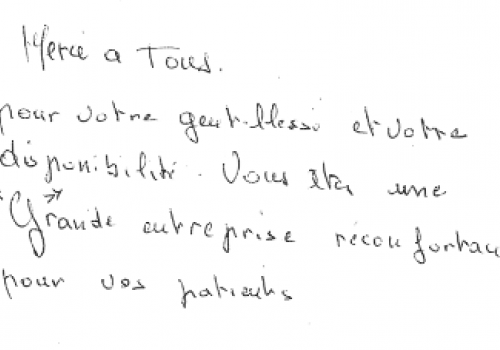 Merci a Tous.
pour votre gentillesse et votre
disponibilité. Vous êtes une
"Grande" entreprise réconfortan
pour vos patients